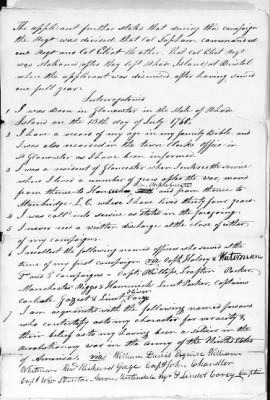 The applicant further states that during this campaign
the Regt was divided that Col Topham commanded
one Regt and Col Elliot the other. That Col Elliot Regt
was stationed after they left Rhode Island at Bristol
when the applicant was dismissed after having served
one full year.
Interogatories
1 I was Born in Gloucester in the State of Rhode
Island on the 13th day of July 1760.
2 I have a record of my age in my family Bible and
I was also recorded in the town clerks office in
Gloucester as I have been informed.
3 I was a resident of Gloucester when I entered the service
where I lived a number of years after the war, moved
from thence to
in Massachusetts
and from thence to
Stanbridge L. C. where I have lived thirty four years.
4 I was called into service as stated in the foregoing.
5 I never rec'd a written discharge at the close of either
of my campaigns.
6 I recollect the following named officers who served at the
time of my first campaign viz Capts Halsey & Waterman
2 and 3 campaigns Capts Phillips, Traffton Parker,
Manchester Riggs & Hammick Lieut Parker, captains
Carlisle & Lieut Oliver Cory
7 I am acquainted with the following named persons
who can testify as to my character for veracity &
their belief as to my having been a soldier in the
revolutionary war in the army of the United States
of America, viz William Davis Esquire William
Whitman Rev Richard Gage Capt John Chandler
Capt Wm Stanton Aaron Martindale Esqr & Lindol Corey Captin